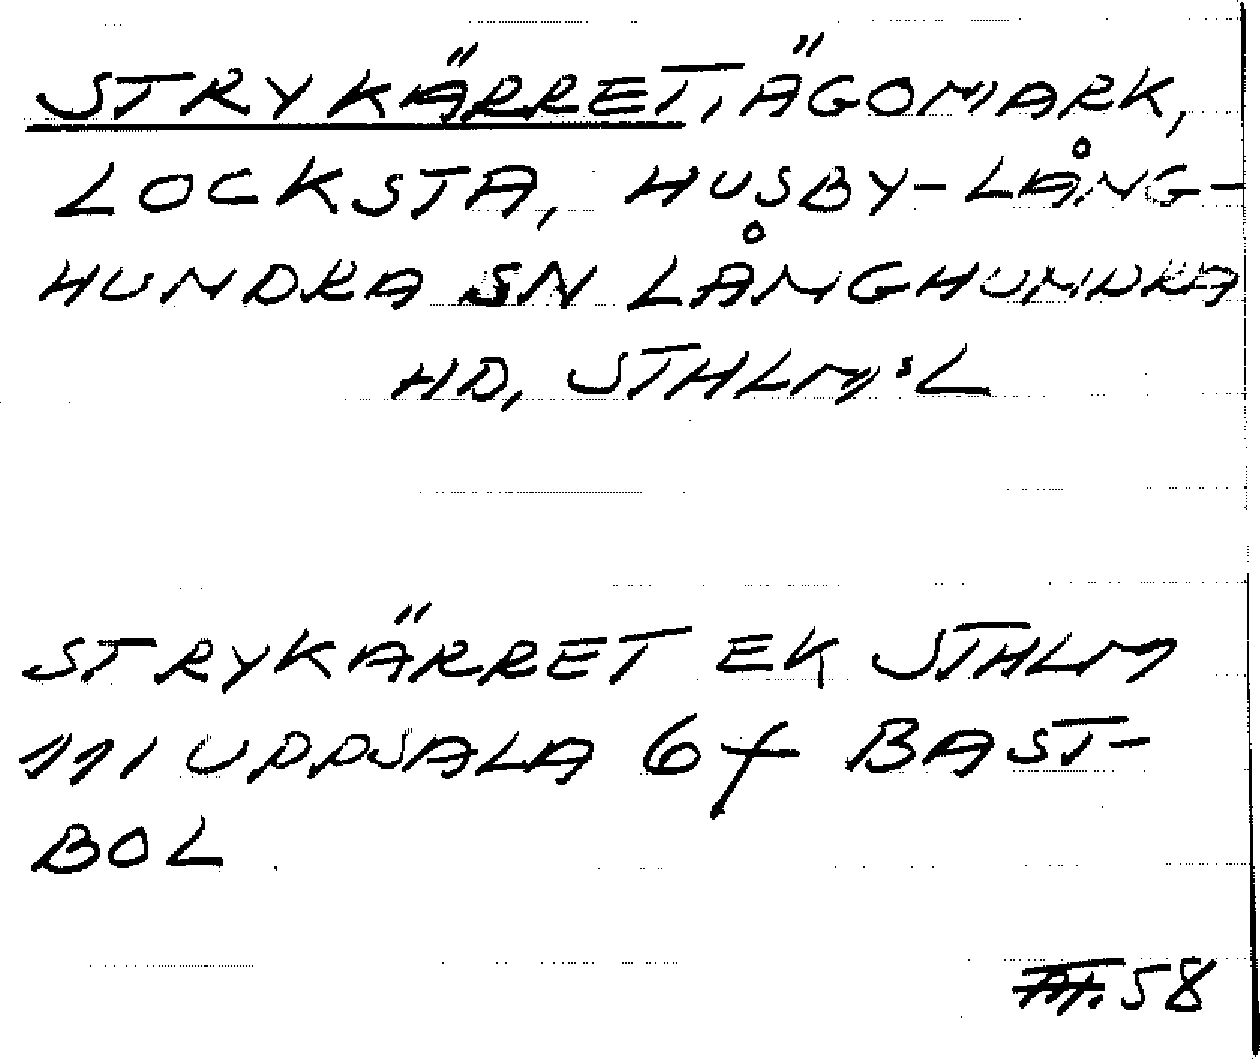 STRYKÄRRET, ÄGOMARK,
LOCKSTA, HUSBY-LÅNG-
HUNDRA SN LÅNGHUNDRA
HD, STHLM:S L
STRYKÄRRET EK STHLM
111 UPPSALA 6f BAST-
BOL
58